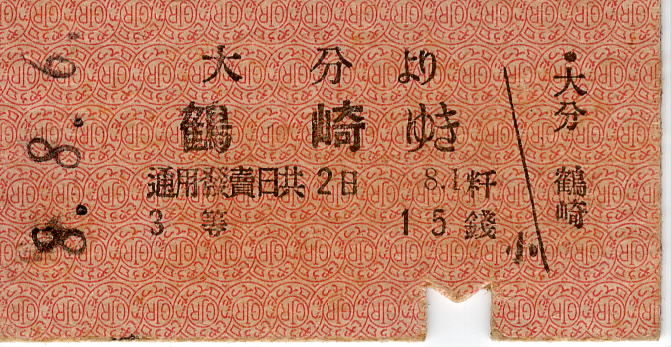 8.8.6.
大分より
鶴崎ゆき
通用發賣日共2日 8.1粁
3等 15錢
・大分
鶴崎
小